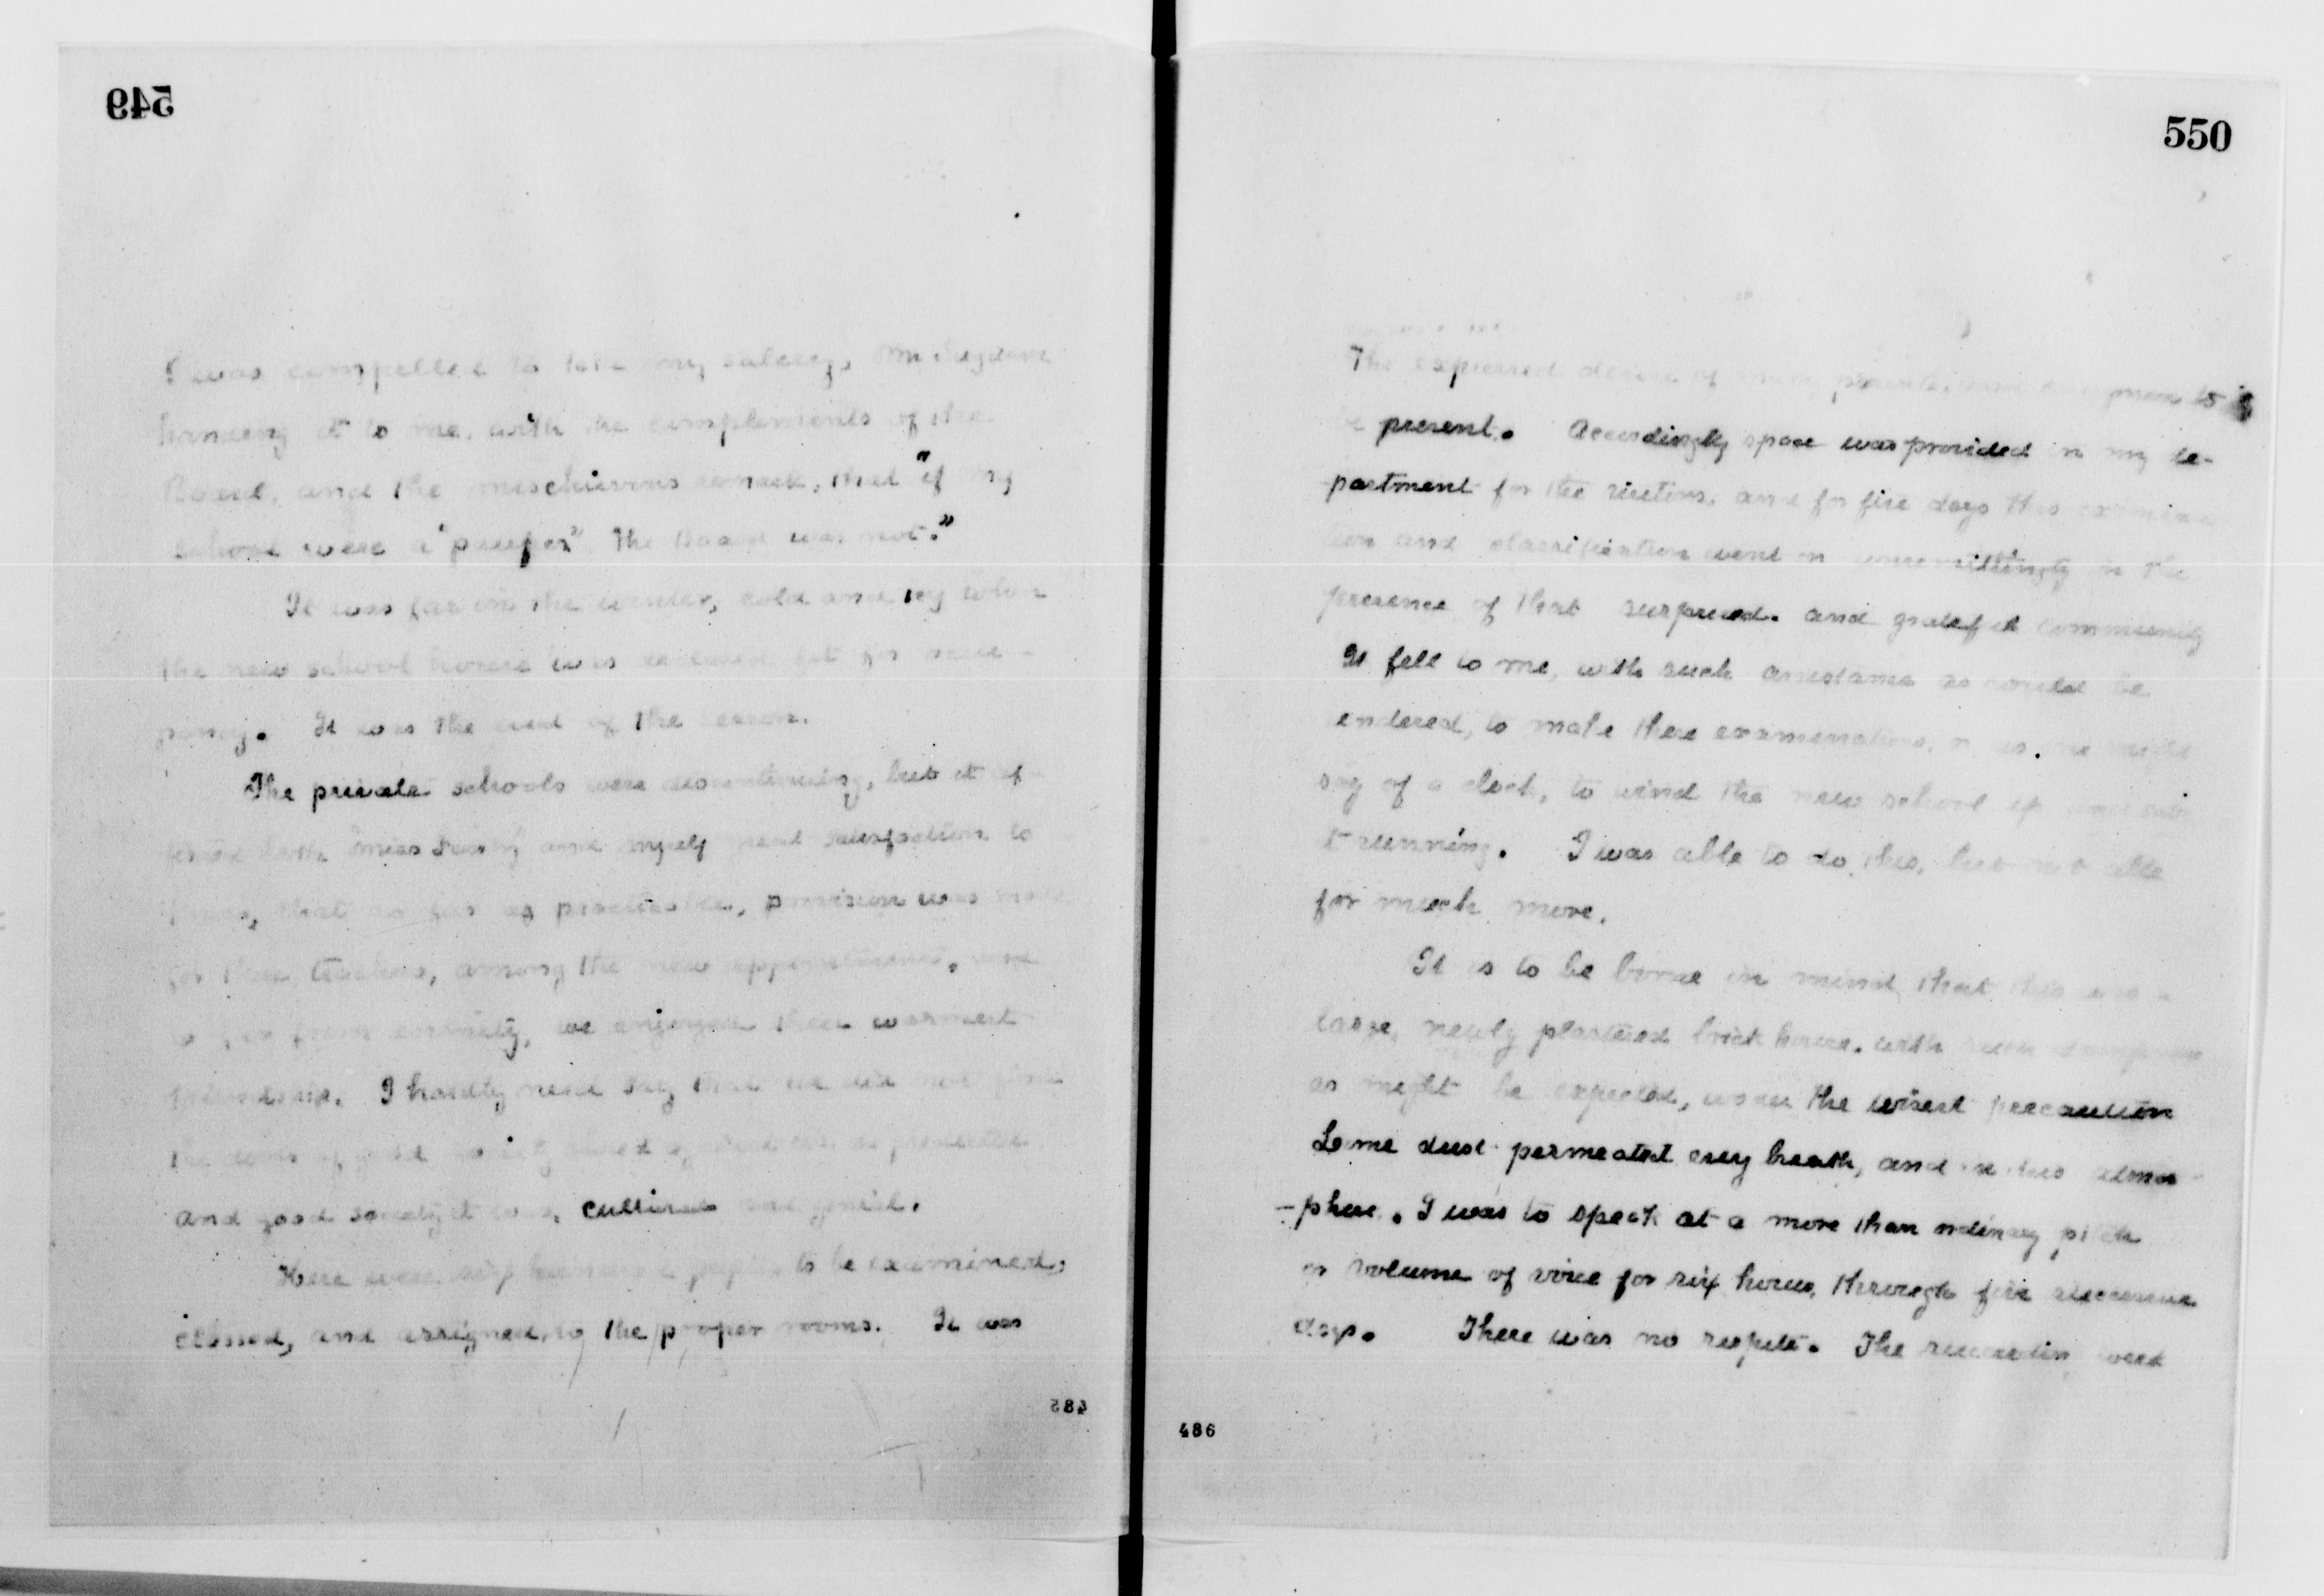 549
I was compelled to take my salary, Mr Suydam
handing it to me, with the compliments of the
Board, and the mischievous remark, that "if my
school were a "pauper" the Board was not."
It was far in the winter, cold and icy when
the new school house was declared fit for occu-
pancy. It was the event of the season.
The private schools were discontinuing, but it af-
both "Miss Fanny" and myself satisfaction to
that so far as practicable, provision was made
for their teachers, among the new appointments,
so far from enmity, we enjoyed their warmest
friendship. I hardly need say that we did not
the doors of good society
and good society it was, cultured and
Here were six hundred pupils to be examined,
classed, and assigned to the proper rooms. It was
485
550
The expressed desire of many parents, and to
be present. Accordingly space was provided in my de-
partment for the visitors, and for five days this
and classification went on unremittingly in the
presence of that surprised, and grateful community
It fell to me, with such assistance as could be
endered, to make these examinations, or, as one might
say of a clock, to wind the new school up and set
it running. I was able to do this, but not able
for much more.
It is to be borne in mind that this was a
large, newly plastered brick house, with such dampness
as might be expected, under the wisest precaution
Lime dust permeated every breath, and in this atmos-
-phere, I was to speak at a more than ordinary pitch
or volume of voice for six hours, through five successive
days. There was no respite. The were
486